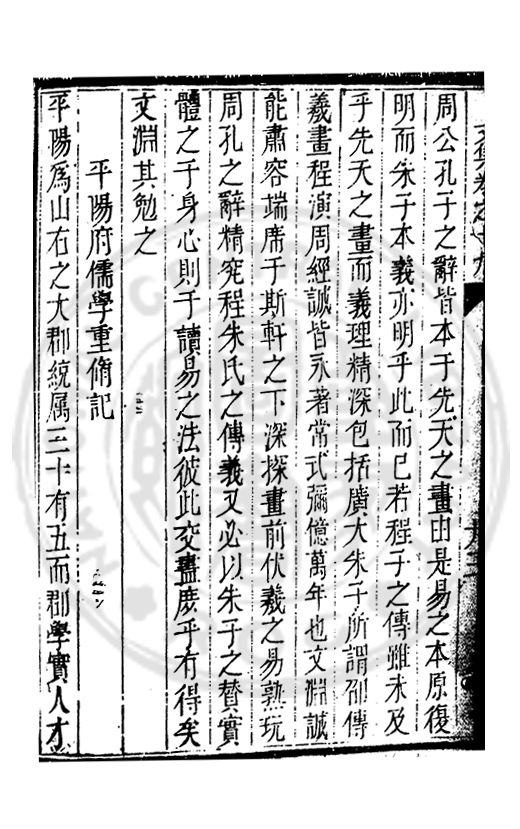 周公孔子之辭皆本于先天之畫由是易之本原復
明而朱子本義亦明乎此而已若程子之傳雖未及
乎先天之畫而義理精深包括廣大朱子所謂邵傳
羲畫程演周經誠皆永著常式彌億萬年也文淵誠
能肅容端席于斯軒之下深探畫前伏羲之易熟玩
周孔之辭精究程朱氏之傳義又必以朱子之贊實
體之于身心則于讀易之法彼此交盡庶乎有得矣
文淵其勉之
平陽府儒學重脩記
平陽爲山右之大郡統属三十有五而郡學實人才